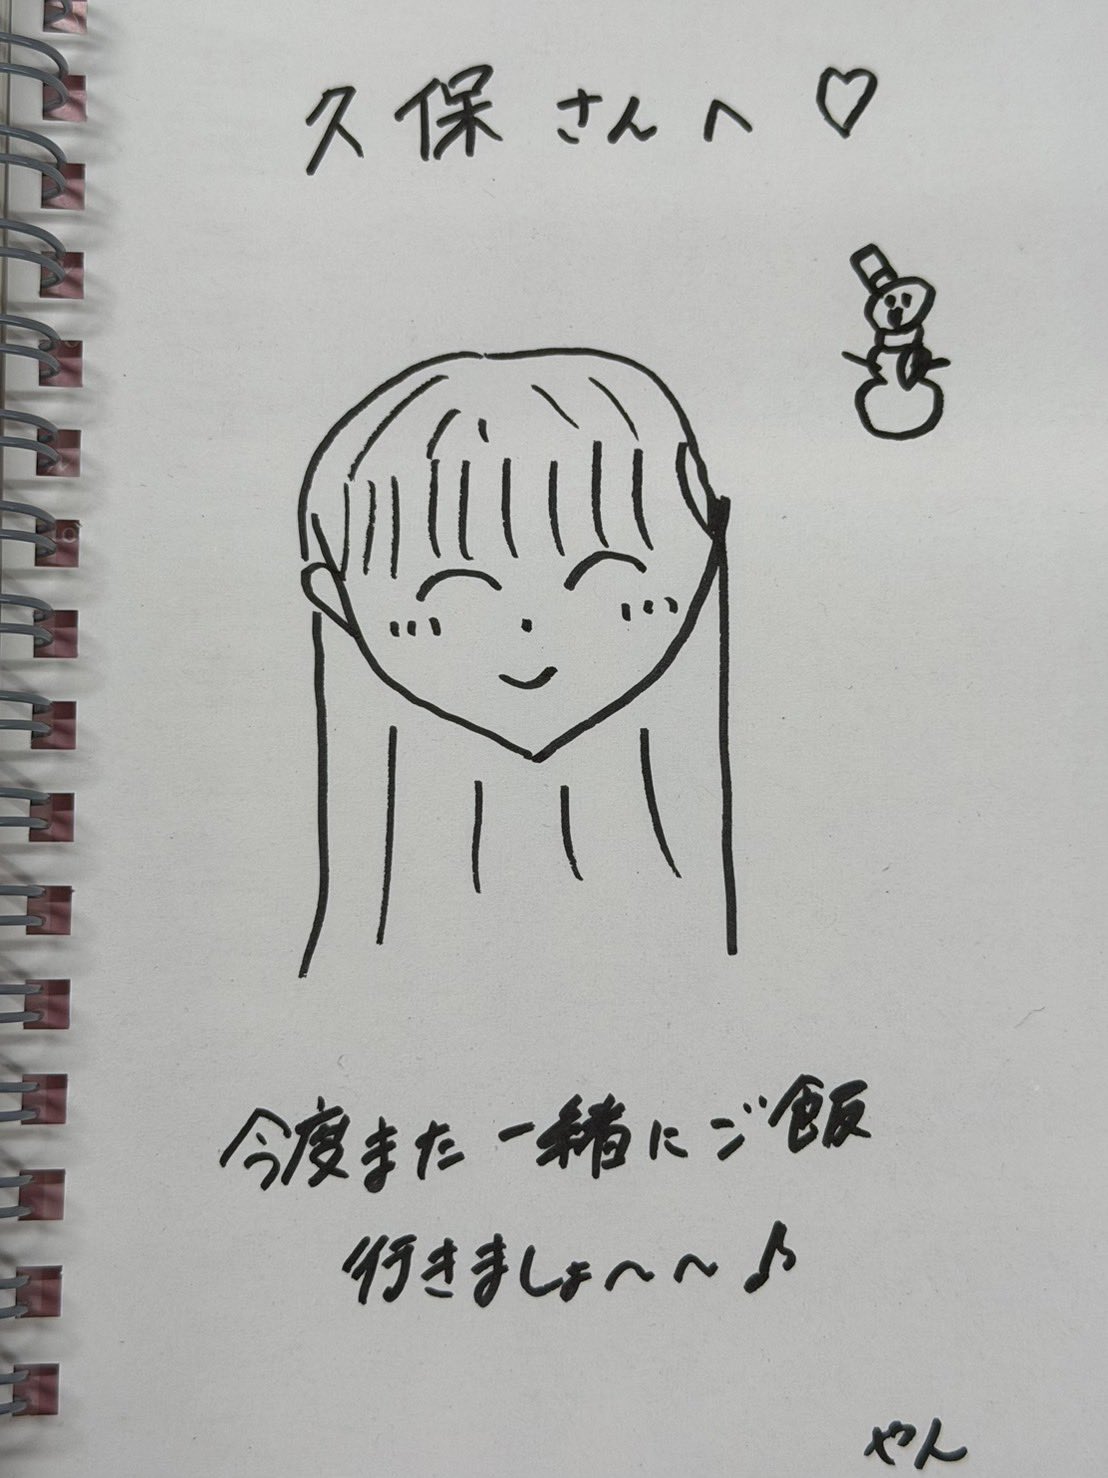 久保さんへ♡
今度また一緒にご飯
行きましょ〜〜♪
やん